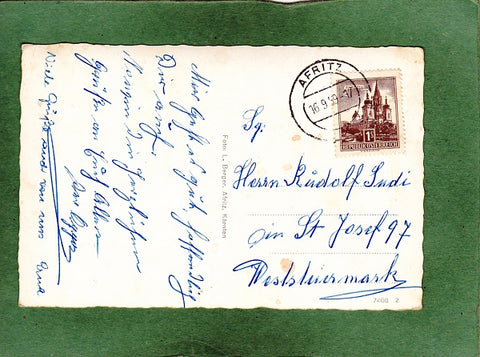 Mir geht es gut, hoffentlich
Dir auch.
herzlichen
Grüßen an Euch Allen
Viele Grüße von uns
Foto: L. Berger, Afritz, Kärnten
AFRITZ
16.9.59-17
1S
REPUBLIK ÖSTERREICH
Sg.
Herrn Rudolf Sudi
in St Josef 97
Weststeiermark
7488 2